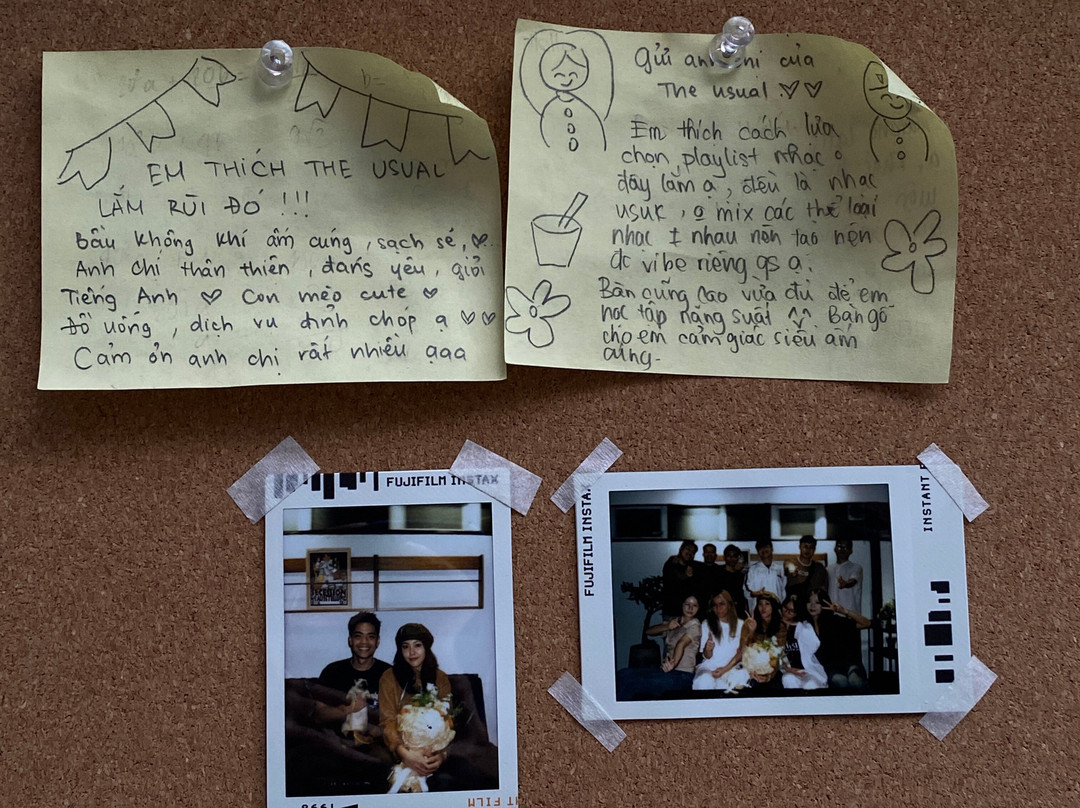 EM THÍCH THE USUAL
LẮM RÙI ĐÓ !!!
Bầu không khí ấm cúng, sạch sẽ, ♡
Anh chị thân thiện, đáng yêu, giỏi
Tiếng Anh ♡ Con mèo cute ♡
Đồ uống, dịch vụ đỉnh chóp ạ ♡♡
Cảm ơn anh chị rất nhiều ạaa
gửi anh chị của
The usual ♡♡
Em thích cách lựa
chọn playlist nhạc ở
đây lắm ạ, đều là nhạc
usuk, mix các thể loại
nhạc nhau nên tạo nên
đc vibe riêng ạ.
Bàn cũng cao vừa đủ để em
học tập năng suất ^^ Bàn gỗ
cho em cảm giác siêu ấm
cúng.
FUJIFILM INSTAX
1998
T FILM
FUJIFILM INSTAX
INSTANT